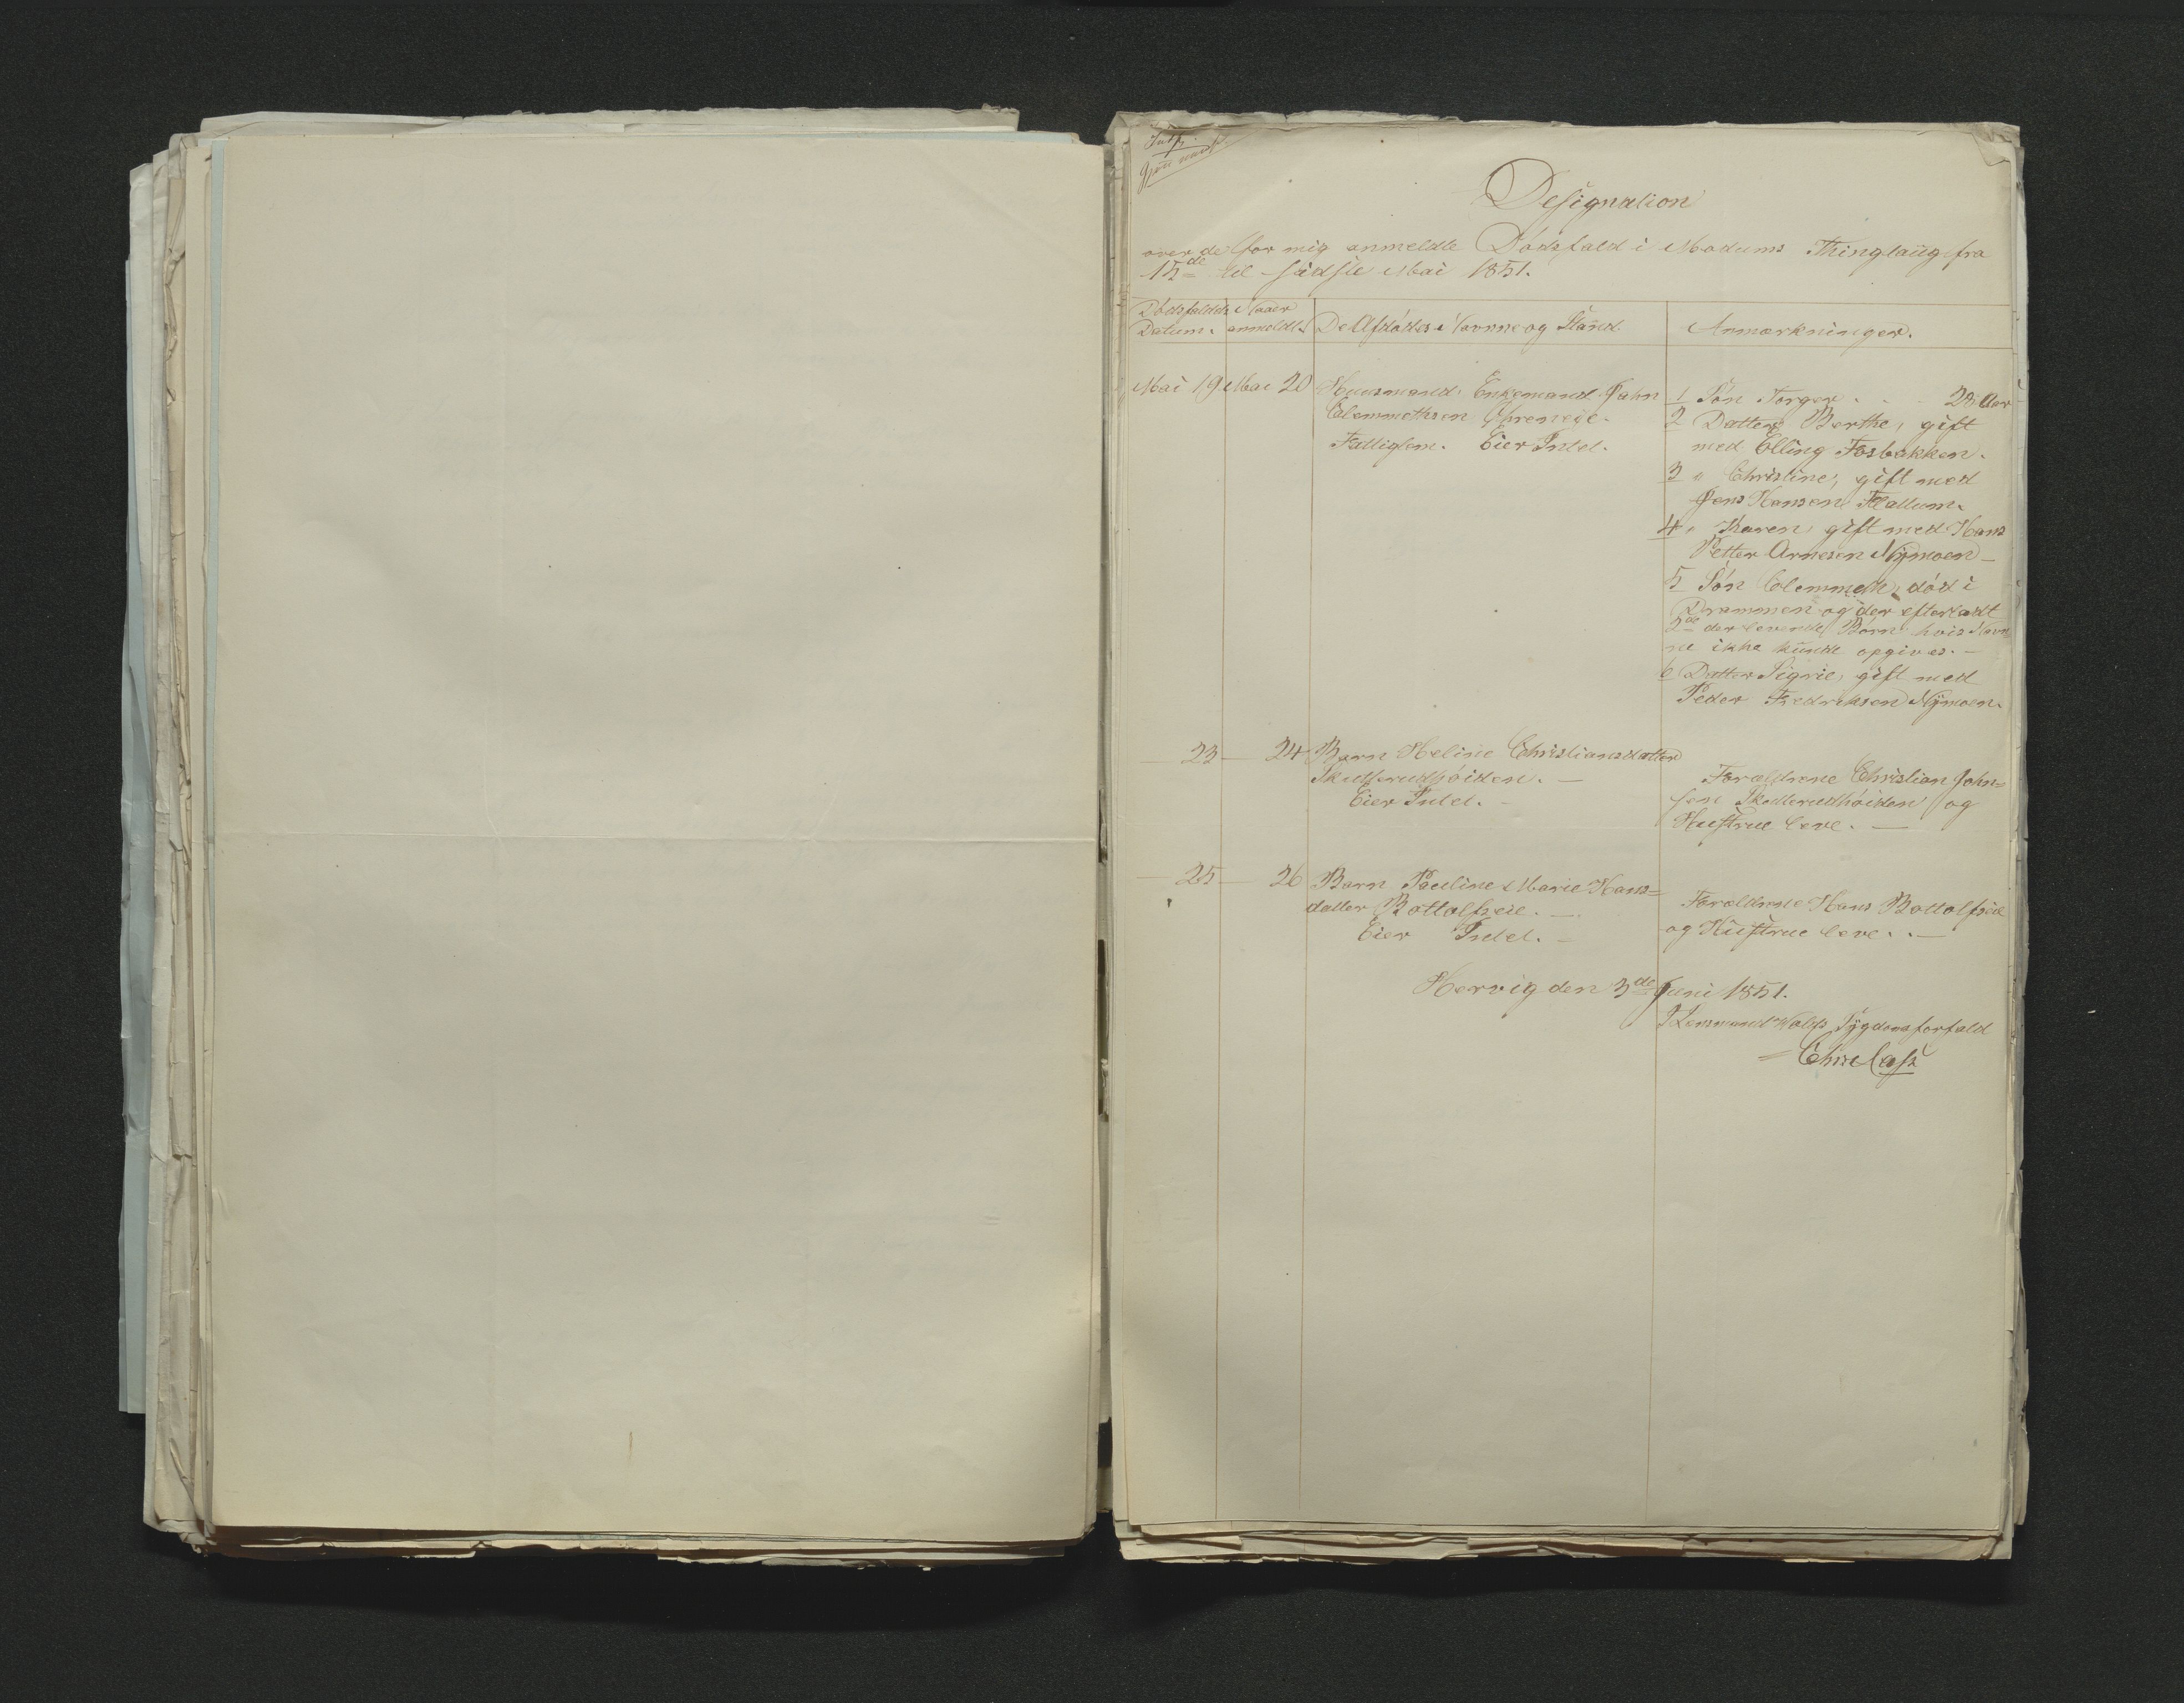 Designation
over de for mig anmeldte Dødsfald i Modums Thinglaug fra
15de til sidste Mai 1851.
Dødsfaldets Naar
Datum. anmeldt. De Afdødes Navne og Stand. Anmærkninger.
Mai 19 Mai 20 Huusmand, Enkemand John
Clemmethsen
Fattiglem. Eier Intet.
1 Søn Torger . . . 28 Aar
2 Datter Berthe, gift
med Elling Fosbakken.
3 " Christine, gift med
Jens Hansen Flattum.
4 " Karen, gift med Hans
Petter Arnesen Nymoen
5 Søn Clemmeth, død i
Drammen og der efterladt
2de der levende Børn hvis Nav=
ne ikke kunde opgives. —
6 Datter Sigrie, gift med
Peder Fredriksen Nymoen.
— 23 — 24 Barn Heline Christiansdatter
Skutterudhøiden. —
Eier Intet. —
Forældrene Christian John=
sen Skutterudhøiden og
Hustrue leve. —
— 25 — 26 Barn Pauline Marie Hans=
datter Bottolfseie. —
Eier Intet. —
Forældrene Hans Bottolfseie
og Hustrue leve. . —
Hervig den 3de Juni 1851.
I Lensmand Sygdomsforfald